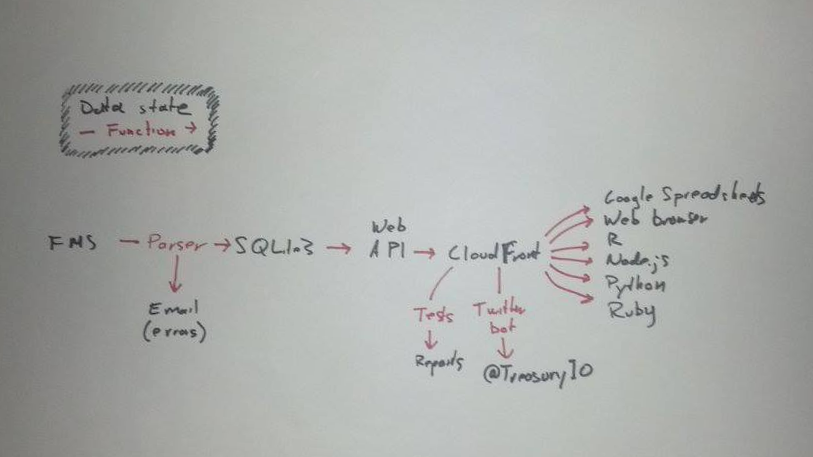 Data state
— Function →
FMS — Parser → SQLite3 → Web API → CloudFront
Email
(errors)
Tests
Reports
Twitter
bot
@TreasuryIO
Google Spreadsheets
Web browser
R
Node.js
Python
Ruby